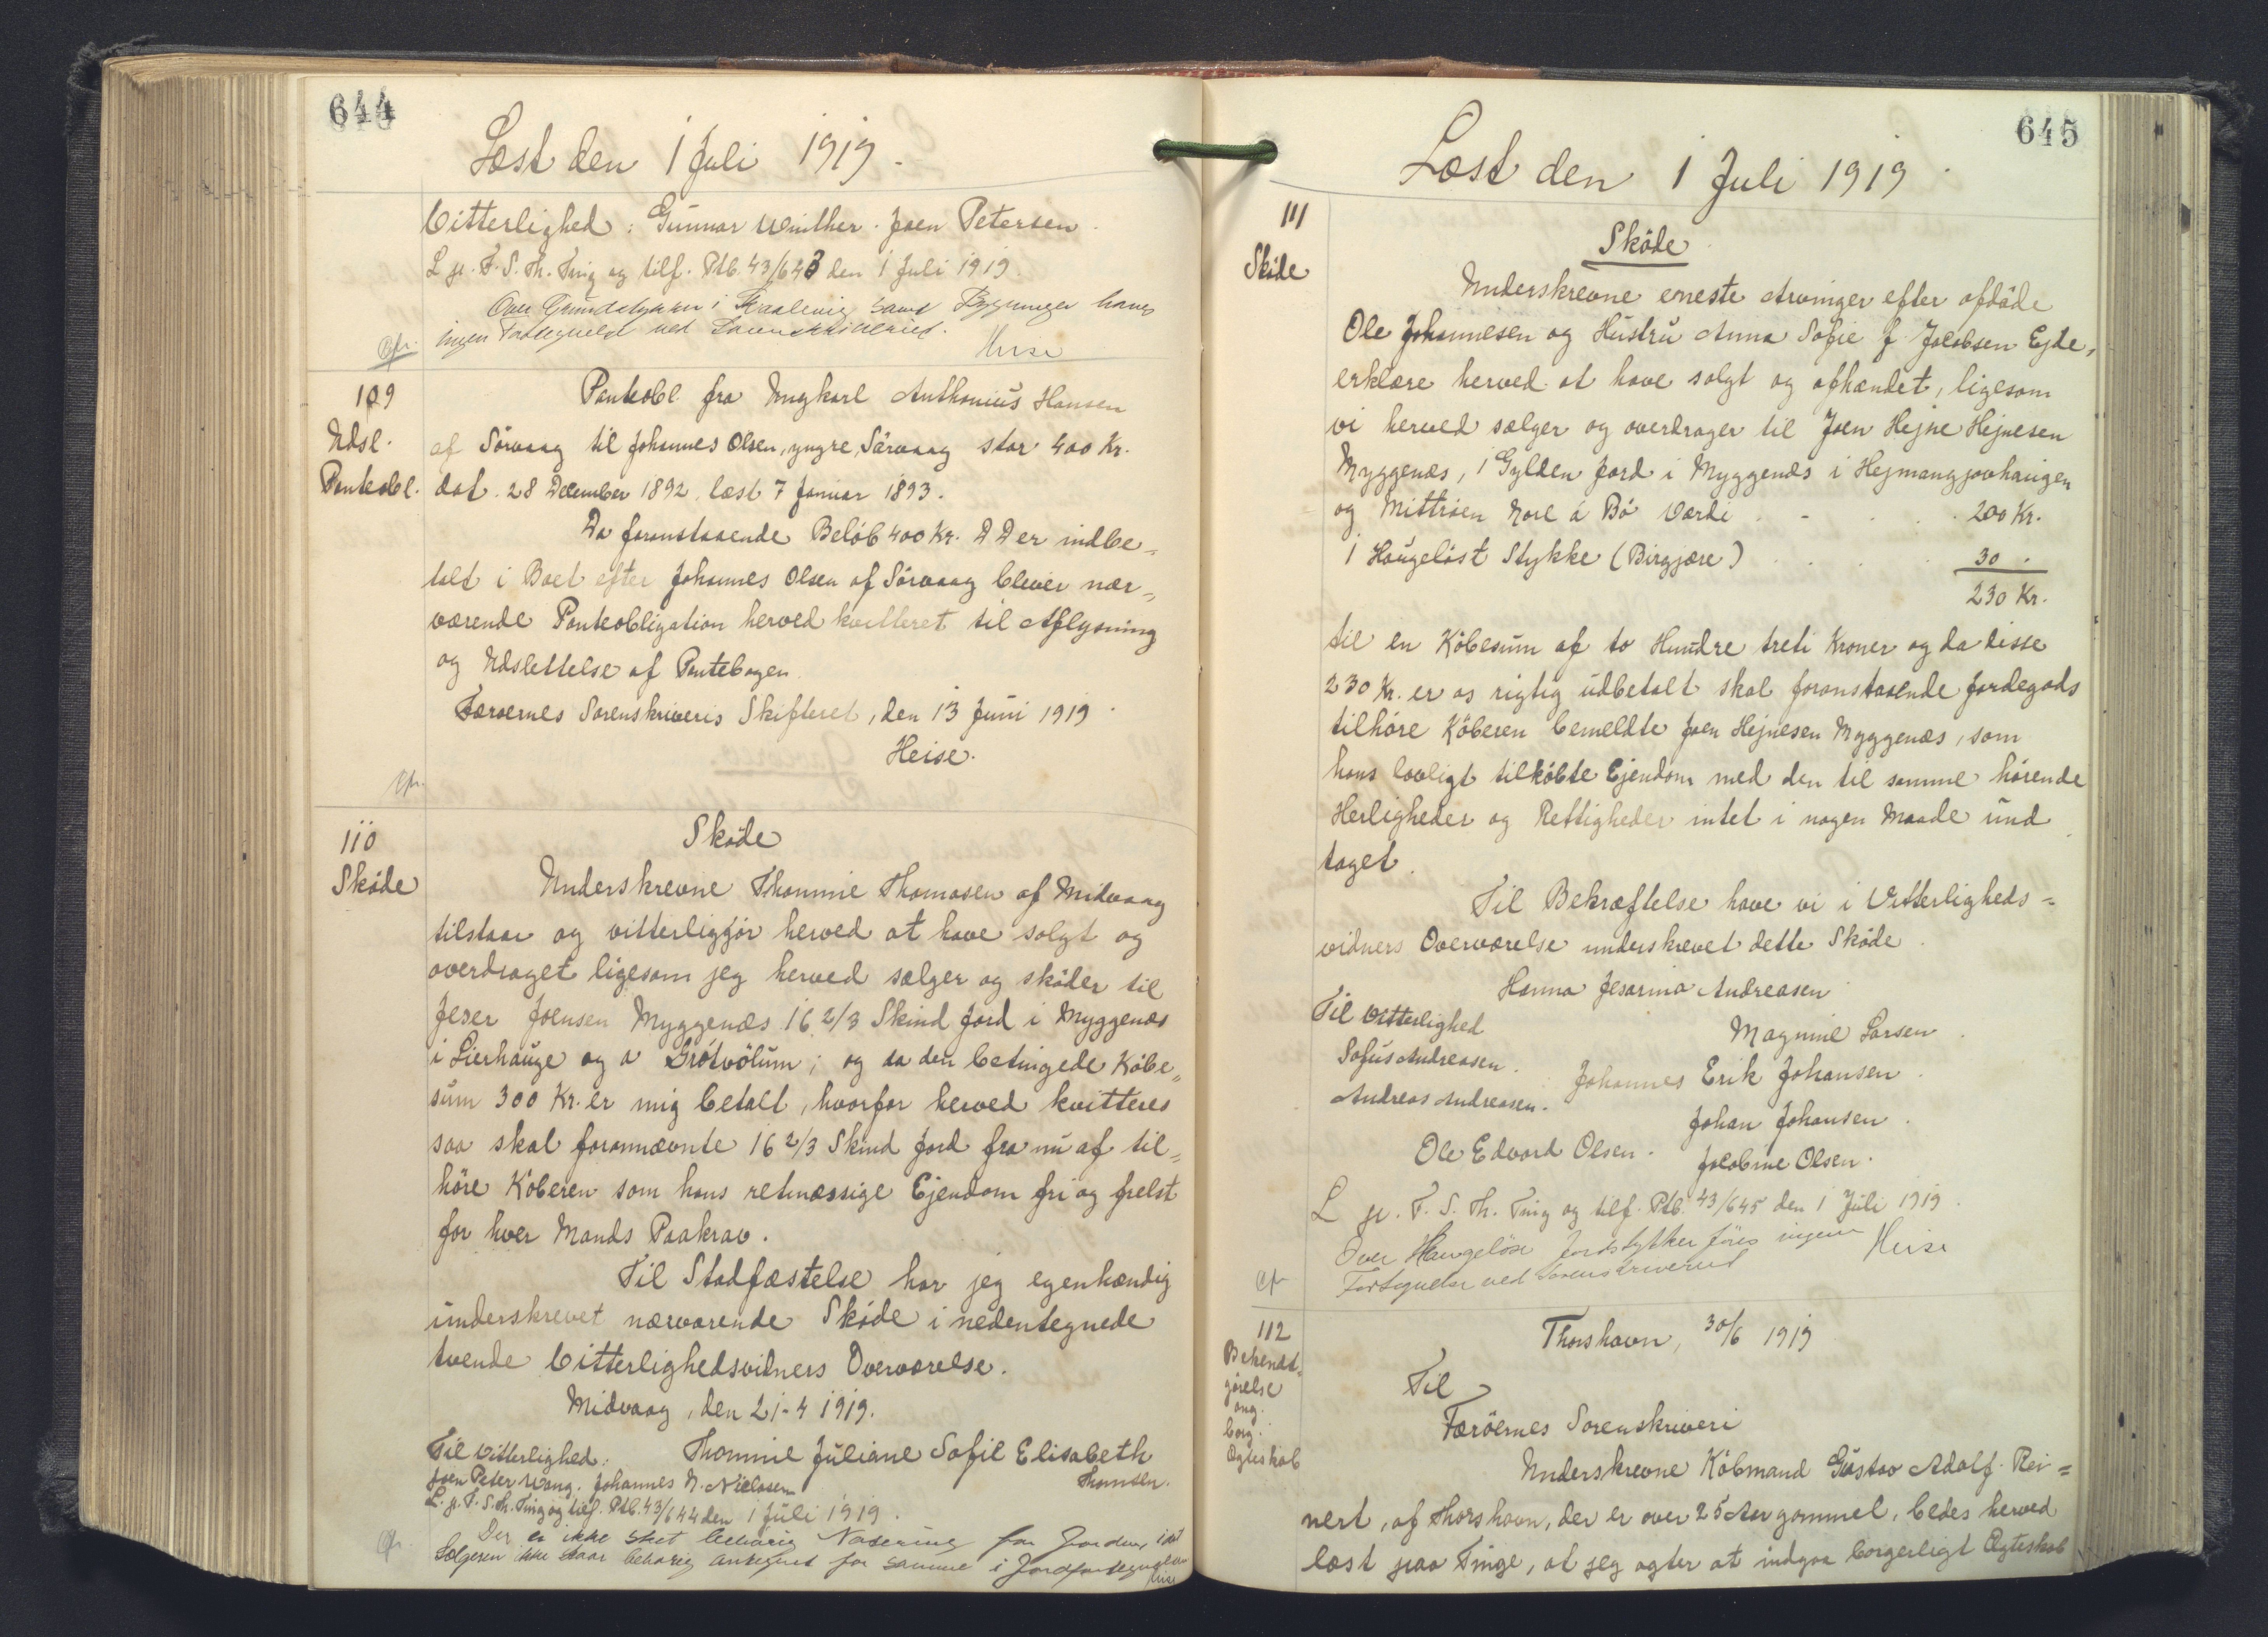 644
Læst den 1 Juli 1919.
Vitterlighed: Gunnar Winther. Joen Petersen.
L. p. F. S. Th. Ting og tilf. Ptb. 43/643 den 1 Juli 1919.
Over Grundstykker i Kaalevig samt Bygninger haves
ingen Fortegnelse ved Sorenskriveriet.
Cfr. Heise
109
Udsl.
Panteobl.
Panteobl fra Ungkarl Anthonius Hansen
af Sörvaag til Johannes Olsen, yngre, Sörvaag stor 400 Kr.
dat. 28 December 1892, læst 7 Januar 1893.
Da foranstaaende Beløb 400 Kr. D D er indbe=
talt i Boet efter Johannes Olsen af Sörvaag bliver nær=
værende Panteobligation herved kvitteret til Aflysning
og Udslettelse af Pantebogen.
Færøernes Sorenskriveris Skifteret, den 13 Juni 1919.
Heise.
Cfr.
110
Skøde
Skøde
Underskrevne Thommie Thomasen af Midvaag
tilstaar og vitterliggjør herved at have solgt og
overdraget ligesom jeg herved sælger og skøder til
Jeser Joensen Myggenæs 16 2/3 Skind Jord i Myggenæs
i Lierhauge og a Grótvölum; og da den betingede Købe=
sum 300 Kr. er mig betalt, hvorfor herved kvitteres
saa skal forannævnte 16 2/3 Skind Jord fra nu af til=
høre Køberen som hans retmæssige Ejendom fri og frelst
for hver Mands Paakrav.
Til Stadfæstelse har jeg egenhændig
underskrevet nærværende Skøde i nedentegnede
tvende Vitterlighedsvidners Overværelse.
Midvaag, den 21-4 1919.
Til Vitterlighed: Thommie Juliane Sofie Elisabeth
Joen Peter Wang. Johannes N. Nielasen Thomsen.
L. p. F. S. Th. Ting og tilf. Ptb. 43/644 den 1 Juli 1919.
Der er ikke sket behørig Notering for Jorden, idet
Cfr. Sælgeren ikke staar behørig antegnet for samme i Jordfortegnelsen
Heise
645
Læst den 1 Juli 1919.
111
Skøde
Skøde
Underskrevne eneste Arvinger efter afdøde
Ole Johannesen og Hustru Anna Sofie f. Jacobsen Ejde,
erklære herved at have solgt og afhændet, ligesom
vi herved sælger og overdrager til Joen Hejne Hejnesen
Myggenæs, 1 Gylden Jord i Myggenæs i Hejmangjovhaugen
og Mittrøen Nore á Bø Værdi 200 Kr.
1 Haugeløst Stykke (Birgjære) 30 .
230 Kr.
til en Købesum af to Hundre treti Kroner og da disse
230 Kr. er os rigtig udbetalt skal foranstaaende Jordegods
tilhøre Køberen bemeldte Joen Hejnesen Myggenæs, som
hans lovligt tilkøbte Ejendom med den til samme hørende
Herligheder og Rettigheder intet i nogen Maade und
taget.
Til Bekræftelse have vi i Vitterligheds=
vidners Overværelse underskrevet dette Skøde.
Hanna Jesarina Andreasen
Til Vitterlighed Magnine Larsen.
Sofus Andreasen. Johannes Erik Johansen.
Andreas Andreasen. Johan Johansen.
Ole Edvard Olsen. Jacobine Olsen.
L p. F. S. Th. Ting og tilf. Ptb. 43/645 den 1 Juli 1919.
Over Haugeløse Jordstykker føres ingen Heise
Cfr Fortegnelse ved Sorenskriveriet
112
Bekendt=
gørelse
ang.
borg.
Ægteskab
Thorshavn, 30/6 1919
Til
Færøernes Sorenskriveri
Underskrevne Købmand Gustav Adolf Rei=
nert, af Thorshavn, der er over 25 Aar gammel, bedes herved
læst paa Tinge, at jeg agter at indgaa borgerligt Ægteskab